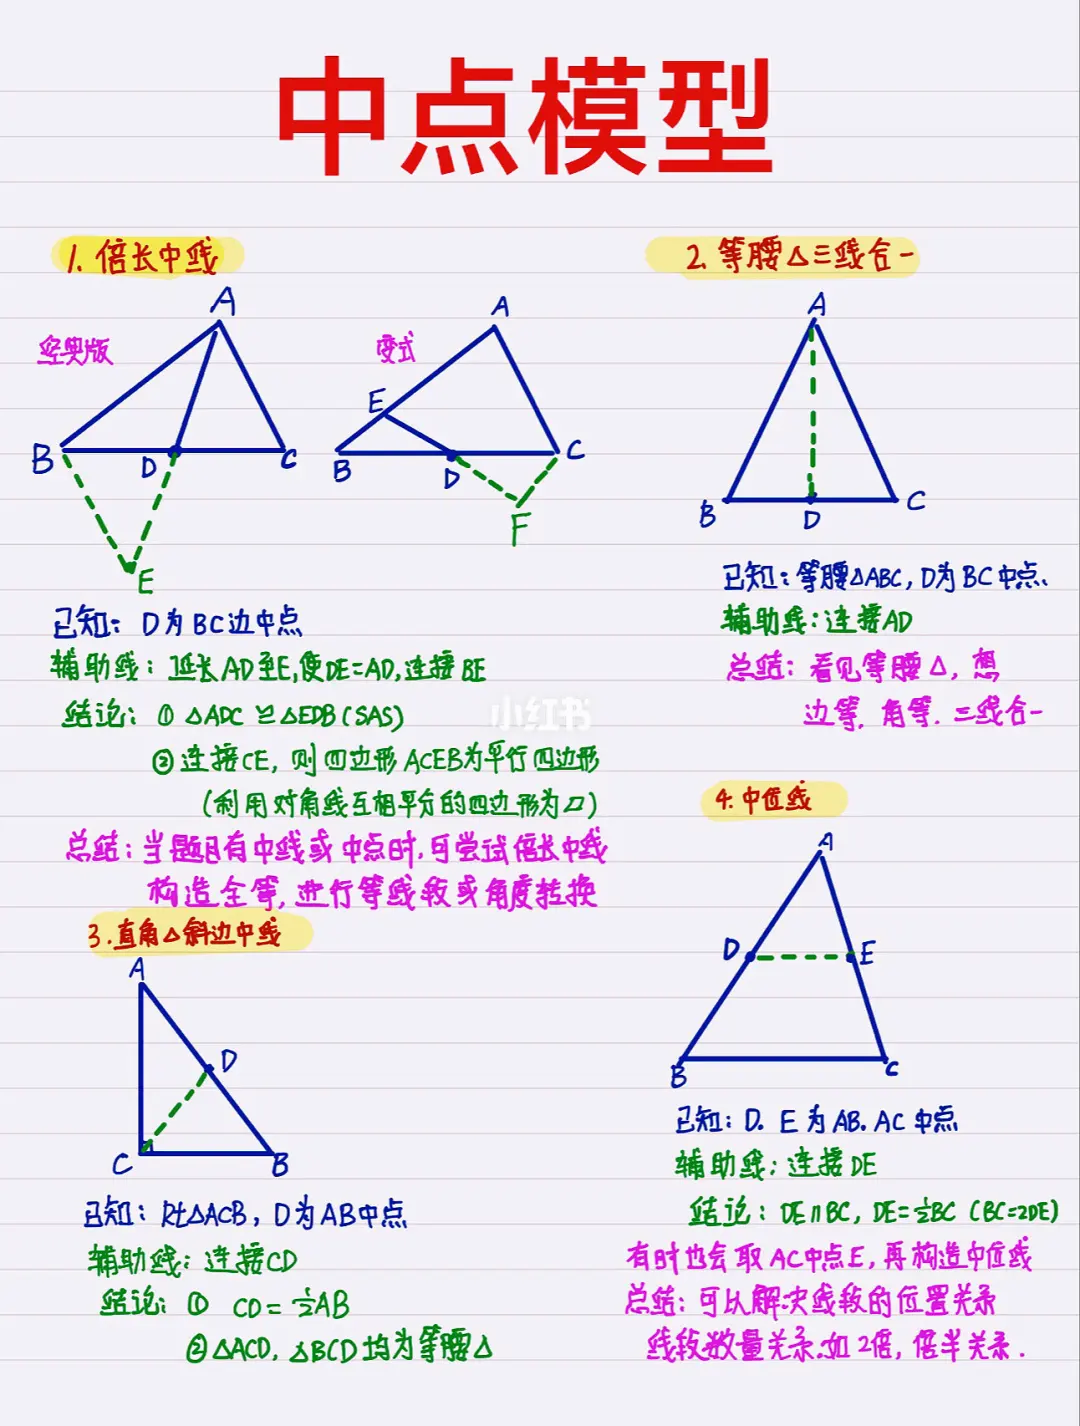 中点模型
1. 倍长中线
经典版
A
B
D
C
E
变式
A
E
B
D
C
F
已知: D为BC边中点
辅助线: 延长AD至E,使DE=AD,连接BE
结论: ① △ADC≌△EDB(SAS)
② 连接CE, 则四边形ACEB为平行四边形
(利用对角线互相平分的四边形为▱)
总结: 当题目有中线或中点时,可尝试倍长中线
构造全等, 进行等线段或角度转换
2. 等腰△三线合一
A
B
D
C
已知: 等腰△ABC, D为BC中点.
辅助线: 连接AD
总结: 看见等腰△, 想
边等. 角等. 三线合一
小红书
3. 直角△斜边中线
A
D
C
B
已知: Rt△ACB, D为AB中点
辅助线: 连接CD
结论: ① CD=½AB
② △ACD, △BCD均为等腰△
4. 中位线
A
D
E
B
C
已知: D. E为AB. AC中点
辅助线: 连接DE
结论: DE∥BC, DE=½BC (BC=2DE)
有时也会取AC中点E, 再构造中位线
总结: 可以解决线段的位置关系
线段数量关系.如2倍, 倍半关系.